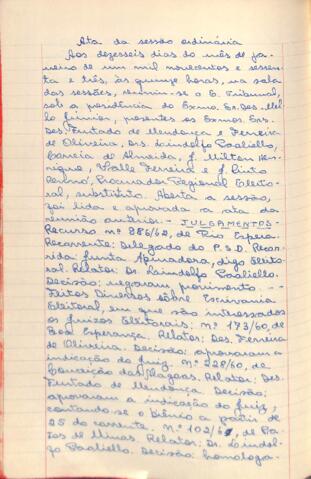 Ata da sessão ordinária
Aos dezesseis dias do mês de ja-
neiro de um mil novecentos e sessen-
ta e três, às quinze horas, na sala
das sessões, reuniu-se o E. Tribunal,
sob a presidência do Exmo. Sr. Des. Mel-
lo Júnior, presentes os Exmos. Srs.
Des. Furtado de Mendonça e Ferreira
de Oliveira, Drs. Lindolfo Paoliello,
Correia de Almeida, J. Milton Hen-
rique, Valle Ferreira e J. Pinto
Procurador Regional Eleito-
ral, substituto. Aberta a sessão,
foi lida e aprovada a ata da
reunião anterior. - JULGAMENTOS-
Recurso nº 886/62, de Rio Espera-
Recorrente: Delegado do P.S.D. Recor-
rida: Junta Apuradora, digo Eleito-
ral. Relator: Dr. Lindolfo Paoliello.
Decisão: negaram provimento. - -
Feitos Diversos sôbre Escrivania
Eleitoral, em que são interessados
os Juízos Eleitorais: nº 173/60, de
Boa Esperança. Relator: Des. Ferreira
de Oliveira. Decisão: aprovaram a
indicação do juiz. nº 228/60, de
Conceição das Alagoas. Relator: Des.
Furtado de Mendonça. Decisão:
aprovaram a indicação do juiz,
contando-se o biênio a partir de
25 do corrente. nº 102/61, de Pa-
tos de Minas. Relator: Dr. Lindol-
fo Paoliello. Decisão: homologa-